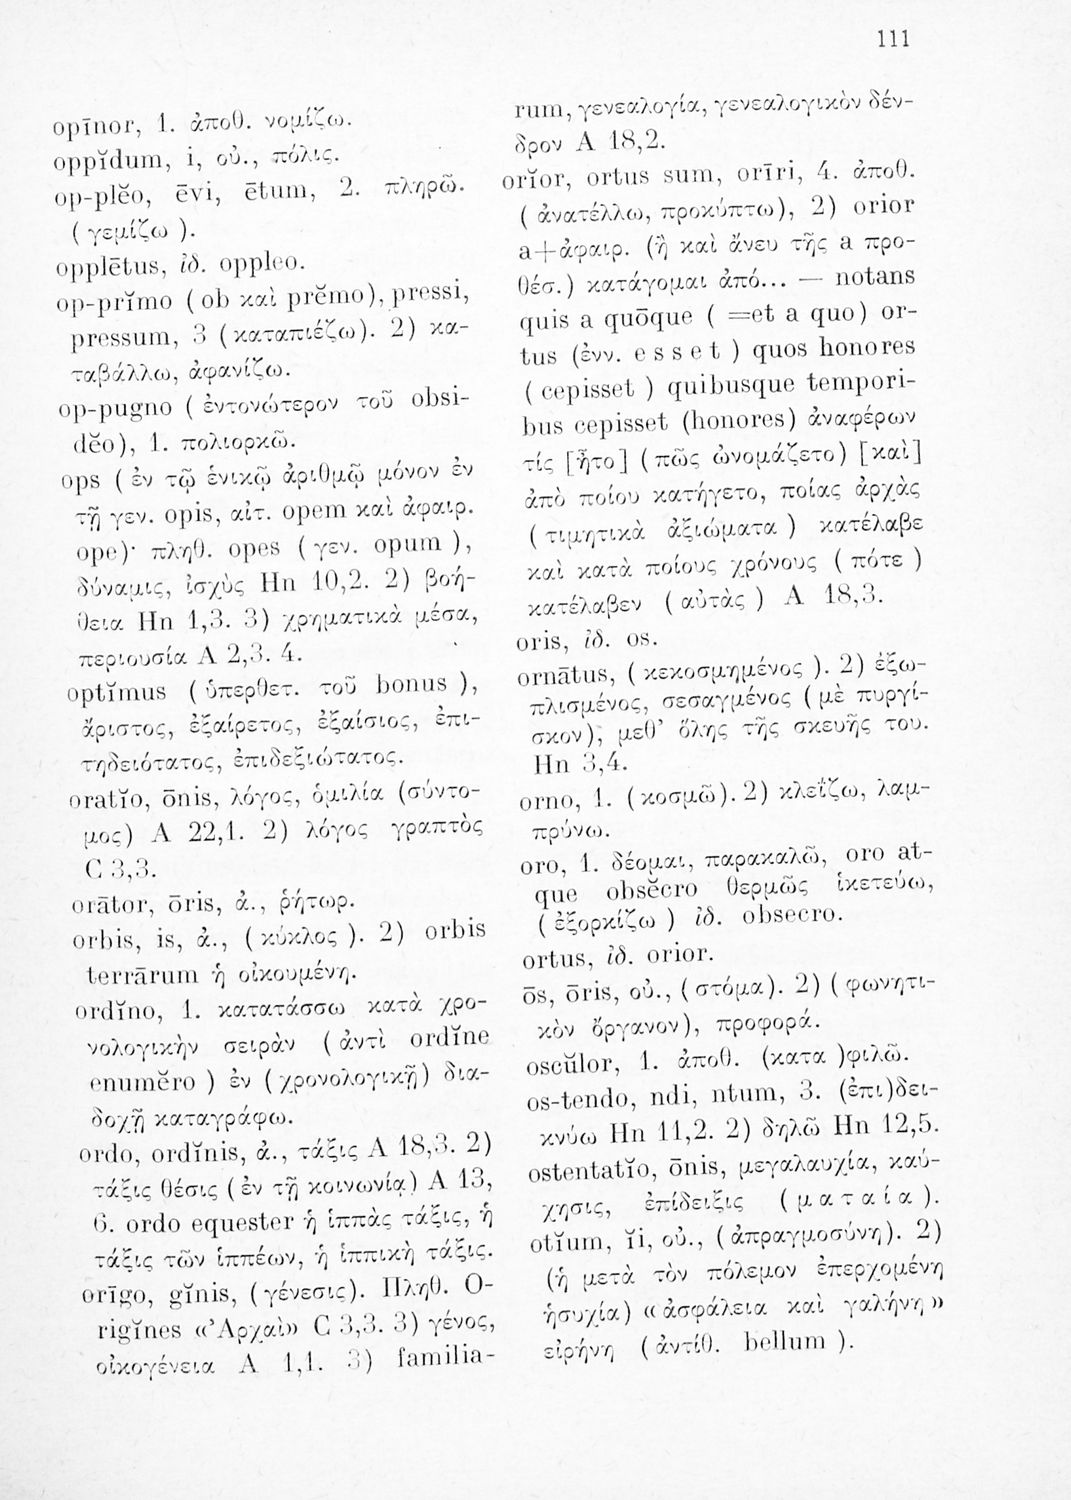 111
opīnor, 1. ἀποθ. νομίζω.
oppĭdum, i, οὐ., πόλις.
op-plĕo, ēvi, ētum, 2. πληρῶ.
( γεμίζω ).
opplētus, ἰδ. oppleo.
op-prĭmo ( ob καὶ prĕmo), pressi,
pressum, 3 ( καταπιέζω). 2) κα-
ταβάλλω, ἀφανίζω.
op-pugno ( ἐντονώτερον τοῦ obsi-
dĕo), 1. πολιορκῶ.
ops ( ἐν τῷ ἑνικῷ ἀριθμῷ μόνον ἐν
τῇ γεν. opis, αἰτ. opem καὶ ἀφαιρ.
ope)· πληθ. opes ( γεν. opum ),
δύναμις, ἰσχὺς Hn 10,2. 2) βοή-
θεια Hn 1,3. 3) χρηματικὰ μέσα,
περιουσία A 2,3. 4.
optĭmus ( ὑπερθετ. τοῦ bonus ),
ἄριστος, ἐξαίρετος, ἐξαίσιος, ἐπι-
τηδειότατος, ἐπιδεξιώτατος.
oratĭo, ōnis, λόγος, ὁμιλία (σύντο-
μος) A 22,1. 2) λόγος γραπτὸς
C 3,3.
orātor, ōris, ἀ., ῥήτωρ.
orbis, is, ἀ., ( κύκλος ). 2) orbis
terrārum ἡ οἰκουμένη.
ordĭno, 1. κατατάσσω κατὰ χρο-
νολογικὴν σειρὰν ( ἀντὶ ordĭne
enumĕro ) ἐν ( χρονολογικῇ) δια-
δοχῇ καταγράφω.
ordo, ordĭnis, ἀ., τάξις A 18,3. 2)
τάξις θέσις ( ἐν τῇ κοινωνίᾳ) A 13,
6. ordo equester ἡ ἱππὰς τάξις, ἡ
τάξις τῶν ἱππέων, ἡ ἱππικὴ τάξις.
orīgo, gĭnis, ( γένεσις). Πληθ. O-
rigĭnes «Ἀρχαὶ» C 3,3. 3) γένος,
οἰκογένεια A 1,1. 3) familia-
rum, γενεαλογία, γενεαλογικὸν δέν-
δρον A 18,2.
orĭor, ortus sum, orīri, 4. ἀποθ.
( ἀνατέλλω, προκύπτω), 2) orior
a+ἀφαιρ. (ἢ καὶ ἄνευ τῆς a προ-
θέσ.) κατάγομαι ἀπό... — notans
quis a quōque ( =et a quo) or-
tus (ἐνν. esset ) quos honores
( cepisset ) quibusque tempori-
bus cepisset (honores) ἀναφέρων
τίς [ἦτο] ( πῶς ὠνομάζετο) [καὶ]
ἀπὸ ποίου κατήγετο, ποίας ἀρχὰς
( τιμητικὰ ἀξιώματα ) κατέλαβε
καὶ κατὰ ποίους χρόνους ( πότε )
κατέλαβεν ( αὐτὰς ) A 18,3.
oris, ἰδ. os.
ornātus, ( κεκοσμημένος ). 2) ἐξω-
πλισμένος, σεσαγμένος ( μὲ πυργί-
σκον), μεθ' ὅλης τῆς σκευῆς του.
Hn 3,4.
orno, 1. ( κοσμῶ). 2) κλεΐζω, λαμ-
πρύνω.
oro, 1. δέομαι, παρακαλῶ, oro at-
que obsĕcro θερμῶς ἱκετεύω,
( ἐξορκίζω ) ἰδ. obsecro.
ortus, ἰδ. orior.
ōs, ōris, οὐ., ( στόμα). 2) ( φωνητι-
κὸν ὄργανον), προφορά.
oscŭlor, 1. ἀποθ. (κατα )φιλῶ.
os-tendo, ndi, ntum, 3. (ἐπι)δει-
κνύω Hn 11,2. 2) δηλῶ Hn 12,5.
ostentatĭo, ōnis, μεγαλαυχία, καύ-
χησις, ἐπίδειξις ( ματαία ).
otĭum, ĭi, οὐ., ( ἀπραγμοσύνη). 2)
(ἡ μετὰ τὸν πόλεμον ἐπερχομένη
ἡσυχία) «ἀσφάλεια καὶ γαλήνη»
εἰρήνη ( ἀντίθ. bellum ).